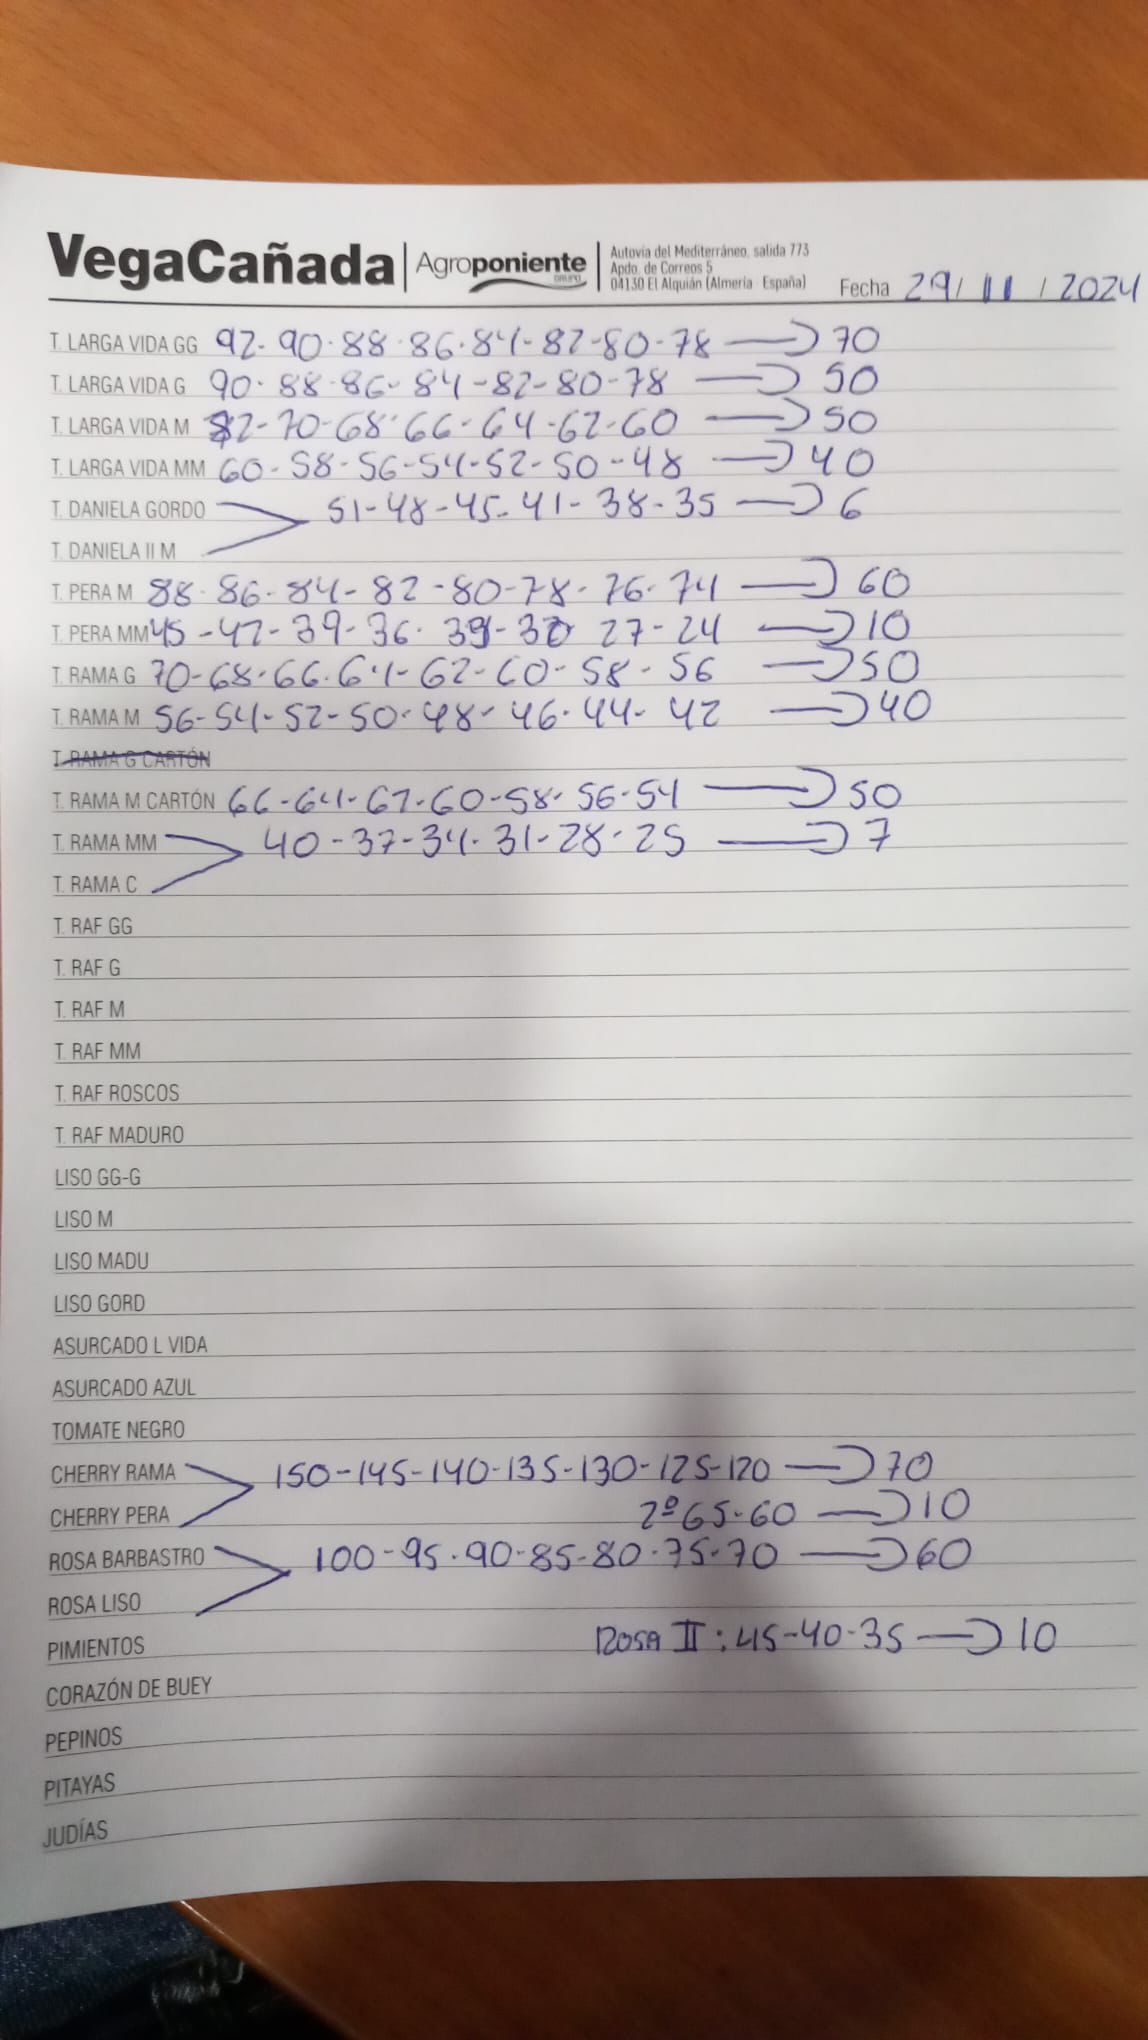 VegaCañada | Agroponiente GRUPO
Autovía del Mediterráneo, salida 773
Apdo. de Correos 5
04130 El Alquián (Almería - España)
Fecha 29/11/2024
T. LARGA VIDA GG 92-90-88-86-84-82-80-78 → 70
T. LARGA VIDA G 90-88-86-84-82-80-78 → 50
T. LARGA VIDA M 72-70-68-66-64-62-60 → 50
T. LARGA VIDA MM 60-58-56-54-52-50-48 → 40
T. DANIELA GORDO 51-48-45-41-38-35 → 6
T. DANIELA II M
T. PERA M 88-86-84-82-80-78-76-74 → 60
T. PERA MM 45-42-39-36-33-30 27-24 → 10
T. RAMA G 70-68-66-64-62-60-58-56 → 50
T. RAMA M 56-54-52-50-48-46-44-42 → 40
T. RAMA G CARTÓN
T. RAMA M CARTÓN 66-64-62-60-58-56-54 → 50
T. RAMA MM 40-37-34-31-28-25 → 7
T. RAMA C
T. RAF GG
T. RAF G
T. RAF M
T. RAF MM
T. RAF ROSCOS
T. RAF MADURO
LISO GG-G
LISO M
LISO MADU
LISO GORD
ASURCADO L VIDA
ASURCADO AZUL
TOMATE NEGRO
CHERRY RAMA 150-145-140-135-130-125-120 → 70
CHERRY PERA 2º 65-60 → 10
ROSA BARBASTRO 100-95-90-85-80-75-70 → 60
ROSA LISO
PIMIENTOS ROSA II: 45-40-35 → 10
CORAZÓN DE BUEY
PEPINOS
PITAYAS
JUDÍAS